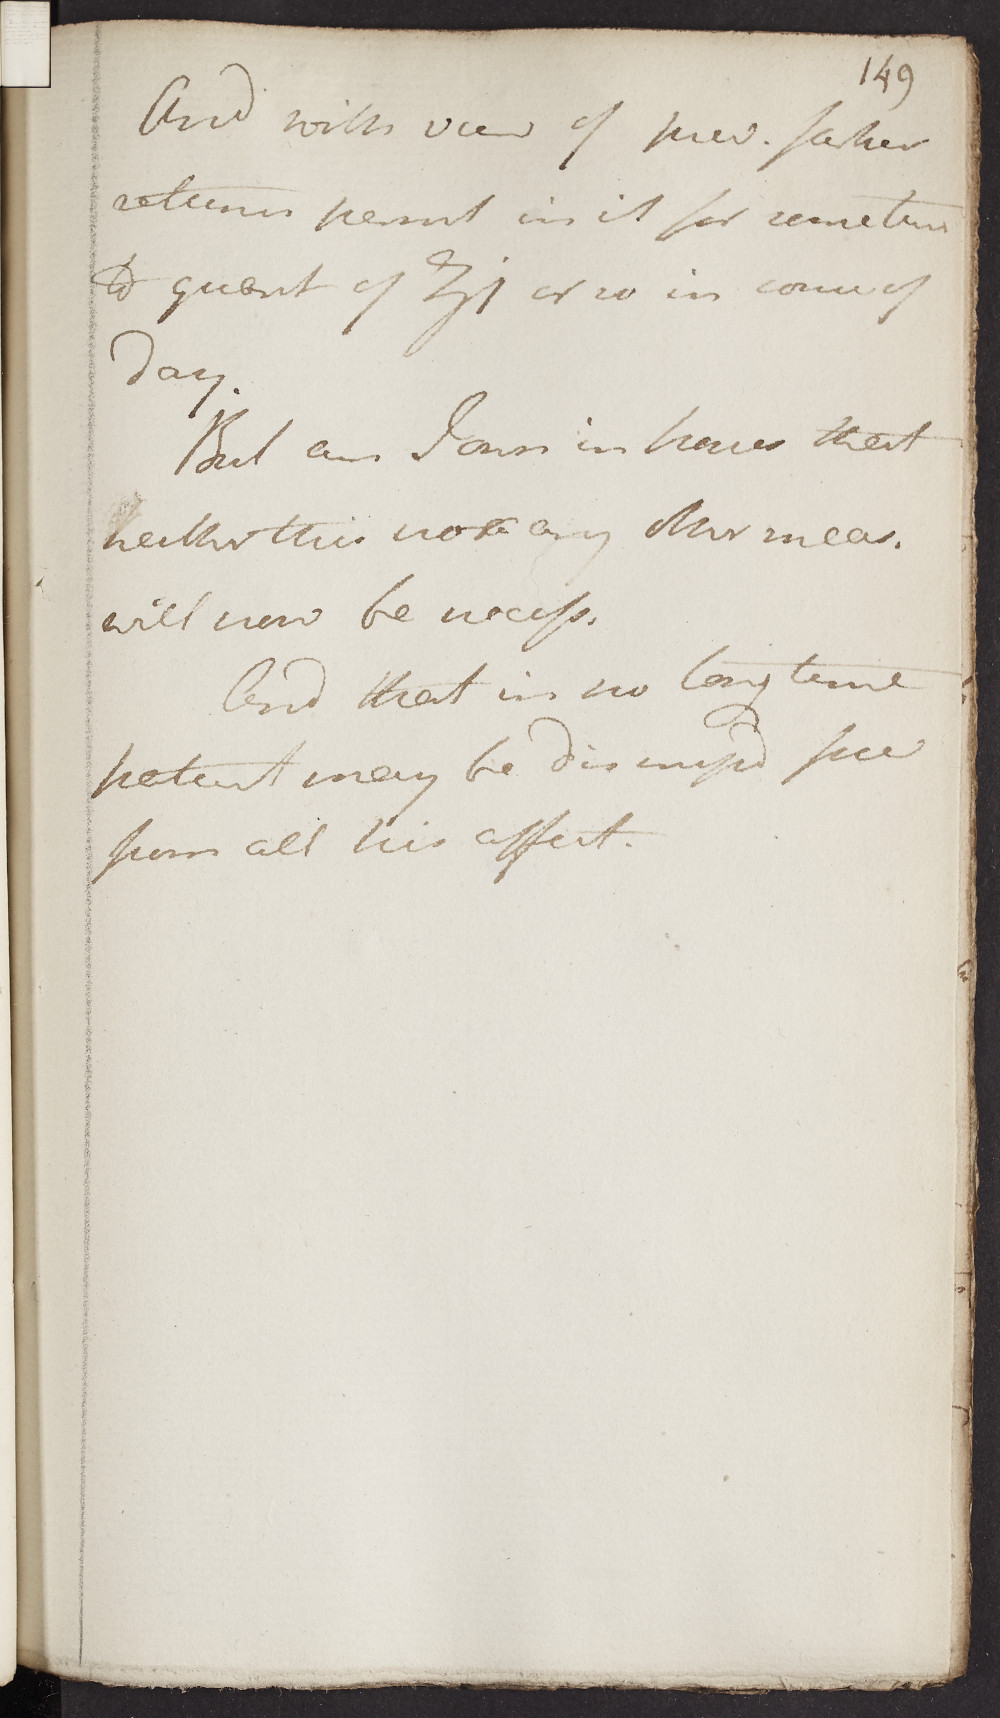 149
And with view of prev. farther
returns persist in it for sometime
to quant of ℥j or so in course of
day.
But am I own in hopes that
neither this nor any other meas.
will now be necess.
And that in no long time
patient may be dismiss'd free
from all his affect.